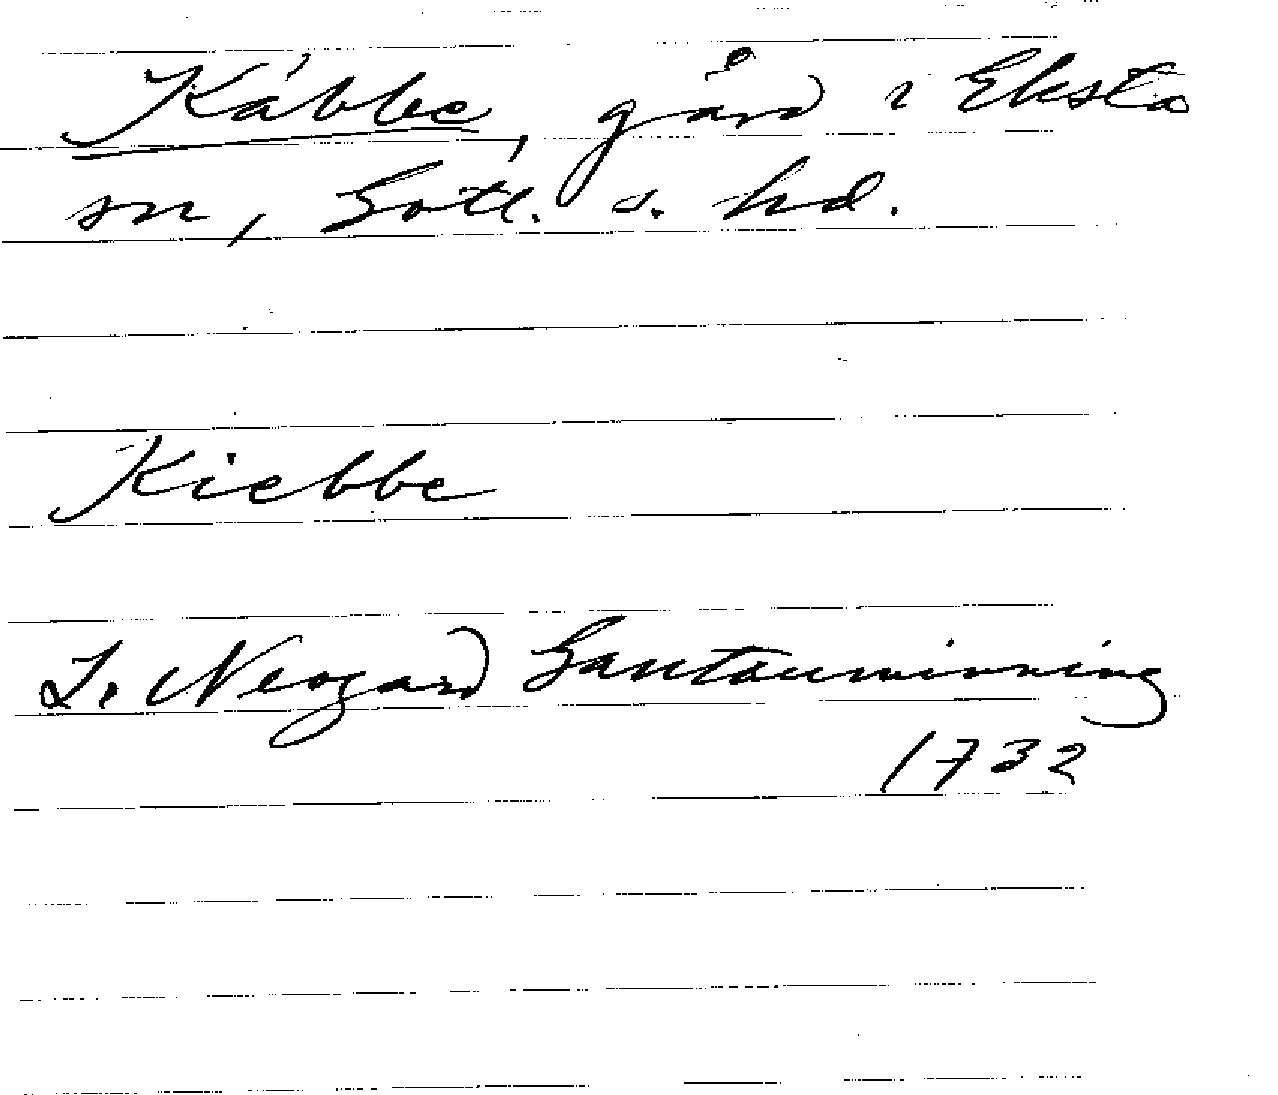 Käbbe, gård i Eksta
sn, Gotl. s. hd.
Kiebbe
L. Neogard Gautauminning
1732